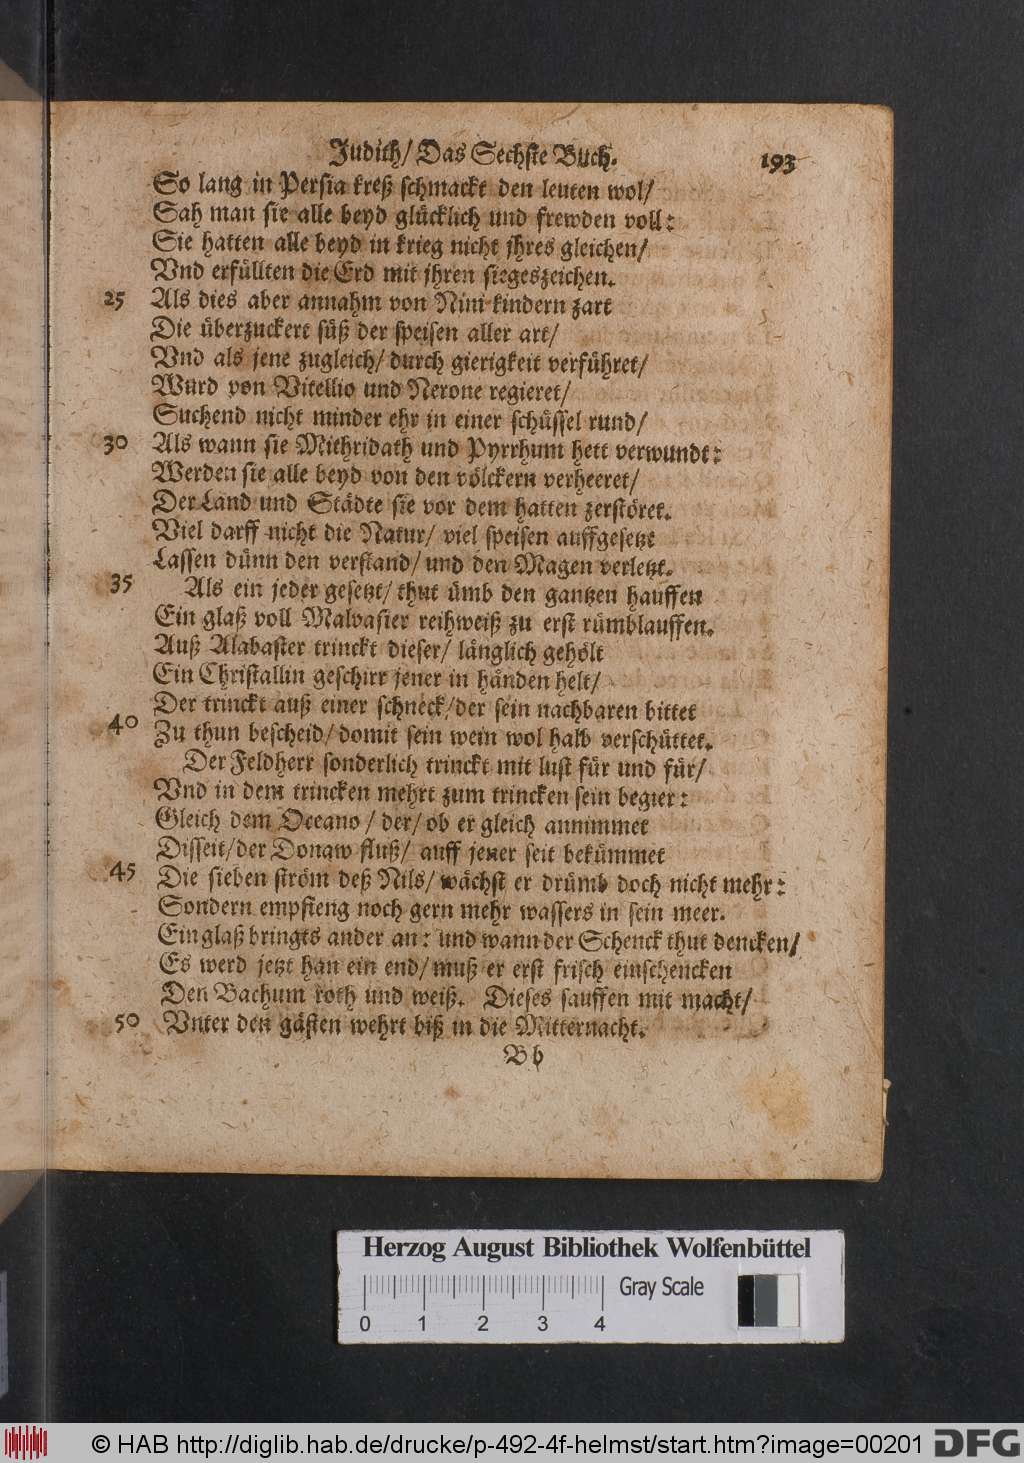 Judith/ Das Sechste Buch. 193
So lang in Persia kreß schmackt den leuten wol/
Sah man sie alle beyd glücklich und frewden voll:
Sie hatten alle beyd in krieg nicht jhres gleichen/
Vnd erfüllten die Erd mit jhren siegeszeichen.
25 Als dies aber annahm von Nini kindern zart
Die überzuckert süß der speisen aller art/
Vnd als jene zugleich/ durch gierigkeit verführet/
Wurd von Vitellio und Nerone regieret/
Suchend nicht minder ehr in einer schüssel rund/
30 Als wann sie Mithridath und Pyrrhum hett verwundt:
Werden sie alle beyd von den völckern verheeret/
Der Land und Städte sie vor dem hatten zerstöret.
Viel darff nicht die Natur/ viel speisen auffgesetzt
Lassen dünn den verstand/ und den Magen verletzt.
35 Als ein jeder gesetzt/ thut ümb den gantzen hauffen
Ein glaß voll Malvasier reihweiß zu erst rümblauffen.
Auß Alabaster trinckt dieser/ länglich gehölt
Ein Christallin geschirr jener in händen helt/
Der trinckt auß einer schneck/ der sein nachbaren bittet
40 Zu thun bescheid/ domit sein wein wol halb verschüttet.
Der Feldherr sonderlich trinckt mit lust für und für/
Vnd in dem trincken mehrt zum trincken sein begier:
Gleich dem Oceano / der/ ob er gleich annimmet
Disseit/ der Donaw fluß/ auff jener seit bekümmet
45 Die sieben ström deß Nils/ wächst er drümb doch nicht mehr:
Sondern empfieng noch gern mehr wassers in sein meer.
Ein glaß bringts ander an: und wann der Schenck thut dencken/
Es werd jetzt han ein end/ muß er erst frisch einschencken
Den Bachum roth und weiß. Dieses sauffen mit macht/
50 Vnter den gästen wehrt biß in die Mitternacht.
B b
Herzog August Bibliothek Wolfenbüttel
0 1 2 3 4 Gray Scale
© HAB http://diglib.hab.de/drucke/p-492-4f-helmst/start.htm?image=00201 DFG